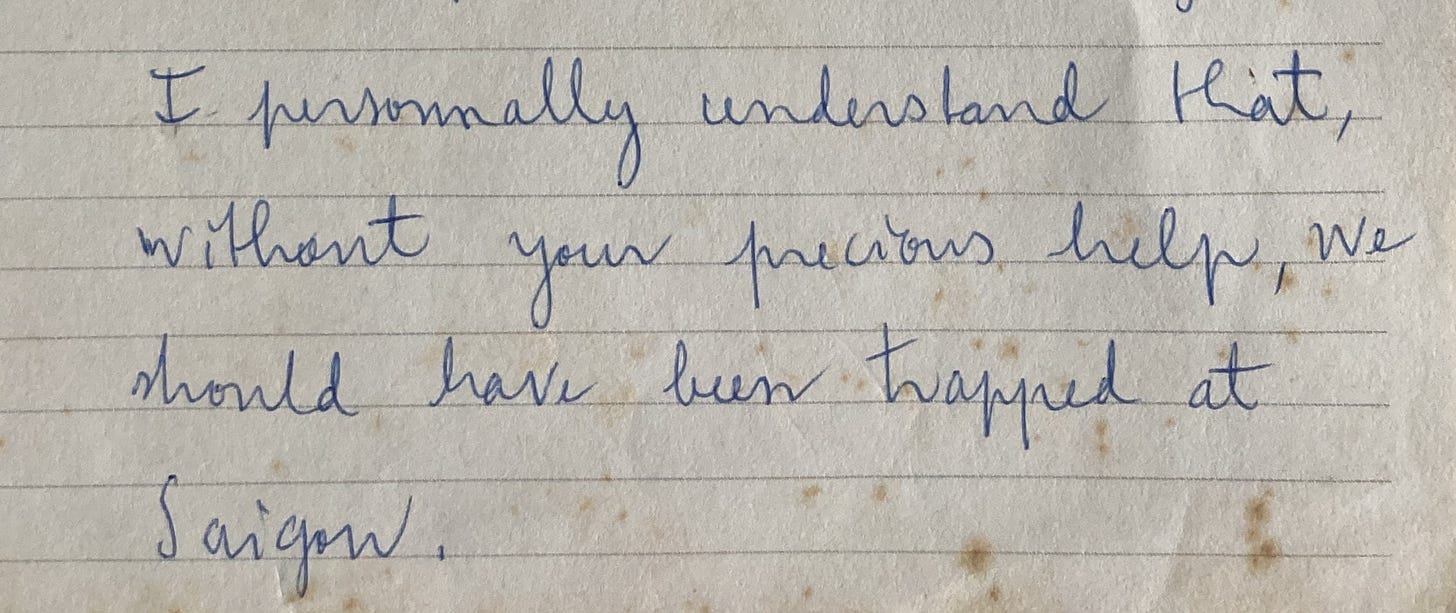 I personnally understand that,
without your precious help, we
should have been trapped at
Saigon.